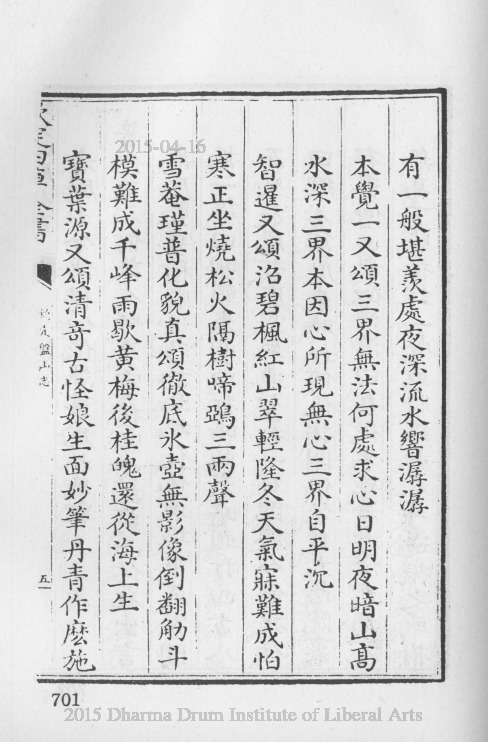 有一般堪羨處夜深流水響潺潺
本覺一又頌三界無法何處求心日明夜暗山高
水深三界本因心所現無心三界自平沉
智暹又頌沼碧楓紅山翠輕隆冬天氣寐難成怕
寒正坐燒松火隔樹啼鵶三兩聲
雪菴瑾普化貌真頌徹底氷壺無影像倒翻觔斗
模難成千峰雨歇黄梅後桂魄還從海上生
寶葉源又頌清竒古怪娘生面妙筆丹青作麽施
盤山志
五
701
2015-04-16
2015 Dharma Drum Institute of Liberal Arts